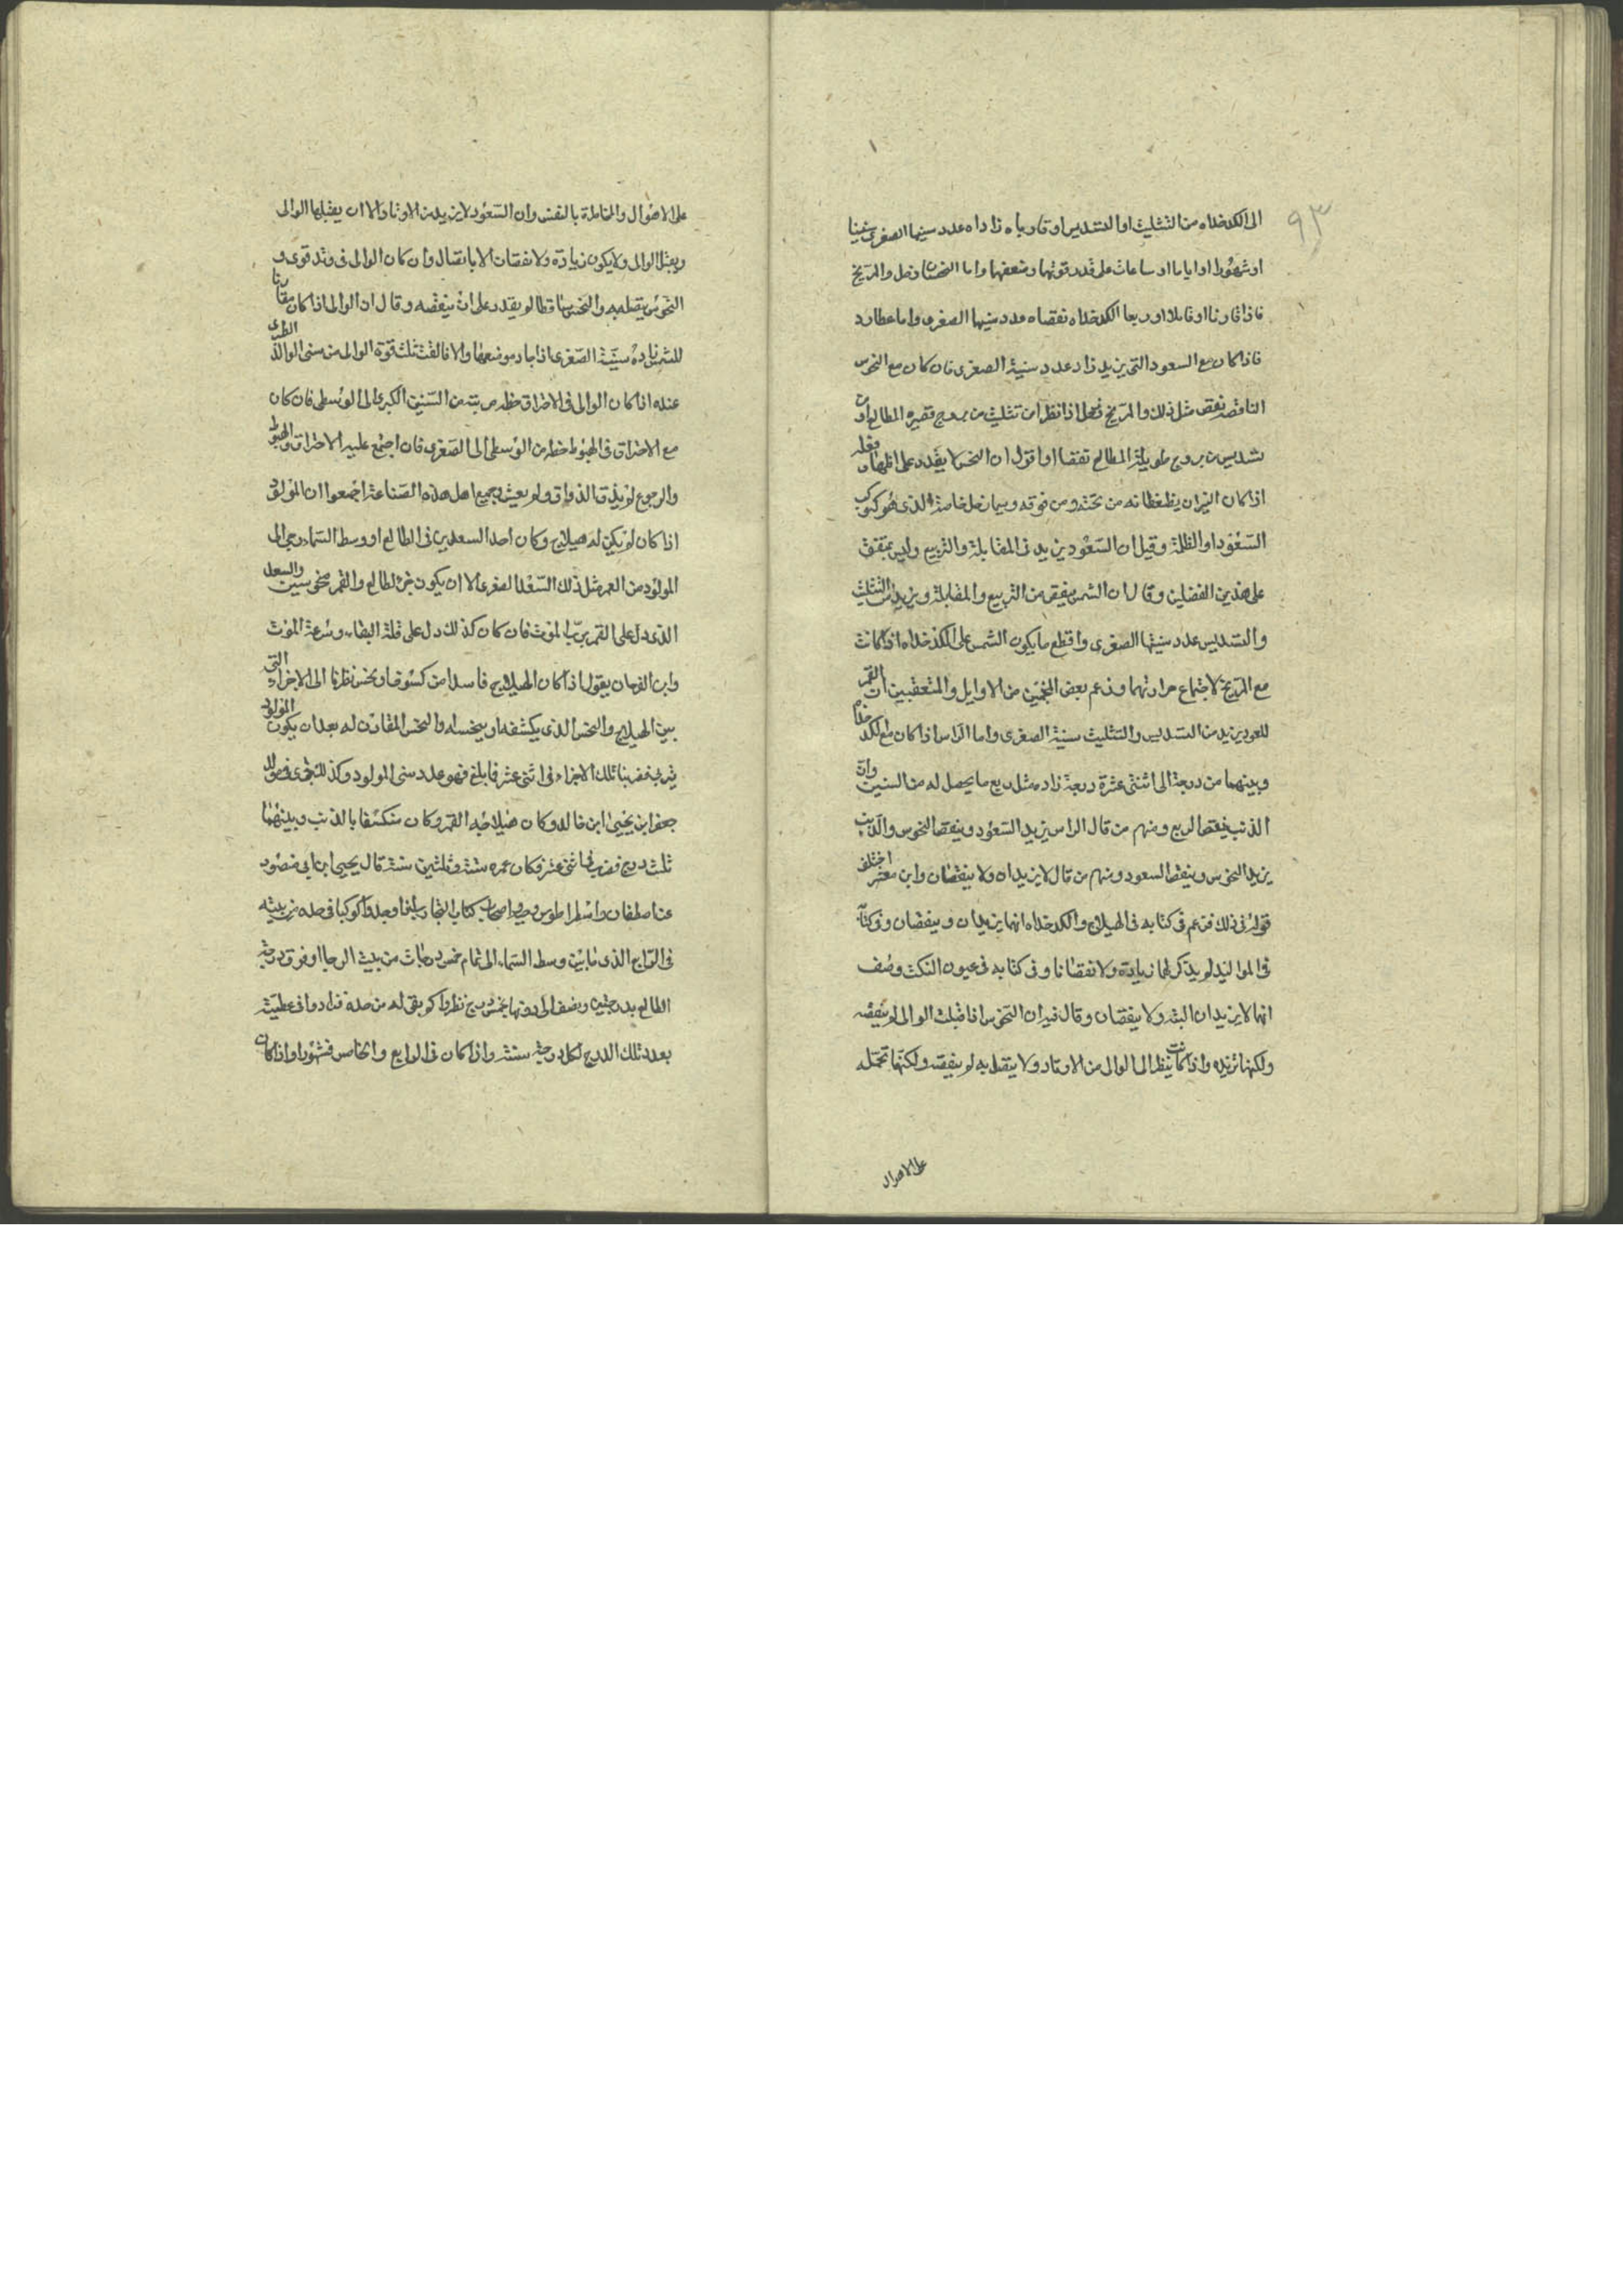 ٩٣
الى الكدخداه من التثليث او التسديس او قارباه زاداه عدد سنيها الصغرى سنينا
او شهورا او اياما او ساعات على قدر قوتها وضعفها واما النحسان زحل والمريخ
فاذا قارنا او قابلا او ربعا الكدخداه نقصاه عدد سنيها الصغرى واما عطارد
فاذا كان مع السعود التى يزيد زاد عدد سنية الصغرى فان كان مع النحوس
الناقصة نقص مثل ذلك والمريخ وزحل اذا نظرا من تثليث من بروج قصيرة المطالع او من
تسديس من بروج طويلة المطالع نقصا اما قول ان النحس لا يقدر على
اذا كان النيران من تحته ومن فوقه وسيما زحل خاصة الذى هو كوكب
السعود او الظلمة وقيل ان السعود يزيد فى المقابلة والتربيع وليس بمتفق
على هذين الفصلين وقال ان الشمس ينقص من التربيع والمقابلة ويزيد من التثليث
والتسديس عدد سنيها الصغرى واقطع ما يكون الشمس على الكدخداه اذا كانت
مع المريخ لاجتماع حرارتهما وزعم بعض المنجمين من الاوايل والمتعقبين ان القمر
للعود يزيد من التسديس والتثليث سنية الصغرى واما الراس اذا كان مع الكدخداه
وبينهما من درجة الى اثنتى عشرة درجة زاده مثل ربع ما يحصل له من السنين وان
الذنب ينقص الربع ومنهم من قال الراس يزيد السعود وينقص النحوس والذنب
يزيد النحوس وينقص السعود ومنهم من قال لا يزيدان ولا ينقصان وابن معشر اختلف
قوله فى ذلك فزعم فى كتابه فى الهيلاج والكدخداه انهما يزيدان وينقصان وفى كتابه
فى المواليد لم يذكر لهما زيادة ولا نقصانا وفى كتابه فى عيون النكت وصف
انهما لا يزيدان البتة ولا ينقصان وقال فيه ان النحوس اذا قبلت الوالى لم ينقصه
ولكنها تزيده واذا كانت ينظر الى الوالى من الاوتاد ولا يتصل به لم ينقصه ولكنها تحمله
على الاهوال
على الاهوال والمخاطرة بالنفس وان السعود لا يزيد من الاوتاد الا ان يقبلها الوالى
ويقبل الوالى ولا يكون زيادة ولا نقصان الا باتصال وان كان الوالى فى وتد قوى و
النحوس يتصل به والنحس ساقطا لم يقدر على ان ينقصه وقال ان الوالى اذا كان مقارنا
للشمس زاده سنية الصغرى اذا جاد موضعهما والا فالقت ثلث قوة الوالى من سنى الوالى الطرى
عنده اذا كان الوالى فى الاحتراق حط مرتبته من السنين الكبرى الى الوسطى فان كان
مع الاحتراق فى الهبوط حط من الوسطى الى الصغرى فان اجتمع عليه الاحتراق والهبوط
والرجوع لم يذق الذواق ولم يعش وجميع اهل هذه الصناعة اجمعوا ان المولود
اذا كان لم يكن له هيلاج وكان احد السعدين فى الطالع او وسط السماء رجى الى
المولود من العمر مثل ذلك السعد الصغرى الا ان يكون رب الطالع والقمر منحوسين والسعد
الذى دل على القمر رب الموت فان كان كذلك دل على قلة البقاء وسرعة الموت
وابن الفرخان يقول اذا كان الهيلاج فاسدا من كسوف او نحس نظرنا الى الاجزاء التى
بين الهيلاج والنحس الذى يكسفه او ينحسه والنحس المقارن له بعد ان يكون المولود
يربى فضربنا تلك الاجزاء فى اثنى عشر فما بلغ فهو عدد سنى المولود وكذلك جرى فى مولد
جعفر ابن يحيى ابن خالد وكان هيلاجه القمر وكان منكسفا بالذنب وبينهما
ثلث درج فضرب فى اثنى عشر فكان عمره ستة وثلثين سنة قال يحيى ابن ابى منصور
عن اصطفان واسطراطوس واصحاب كتاب التجارب انما وجدوا كوكبا فى حده من بيته
فى الرابع الذى مابين وسط السماء الى تمام خمس درجات من بيت الرجا او فوق درجة
الطالع بدرجتين ونصف الى دونها بخمس درج نظروا كم بقى له من حده فزادوا فى عطيته
بعدد تلك الدرج لكل درجة سنة واذا كان فى الرابع والخامس فشهورا واذا كان